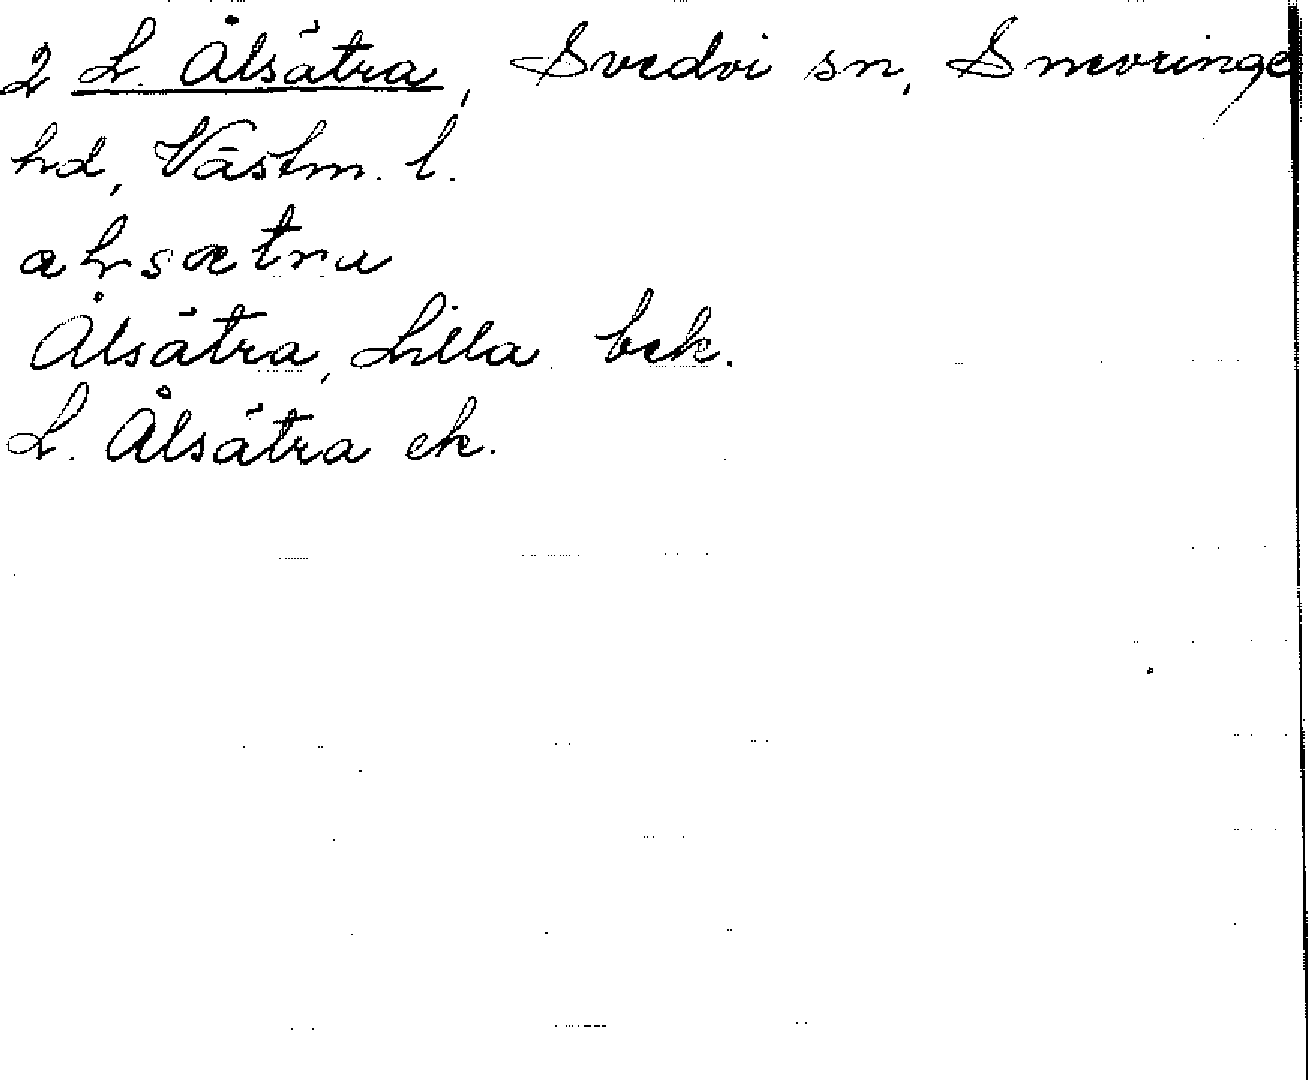 2 L. Ålsätra, Svedvi sn, Snevringe
hd, Västm. l.
Ålsätra, Lilla bek.
L. Ålsätra ek.